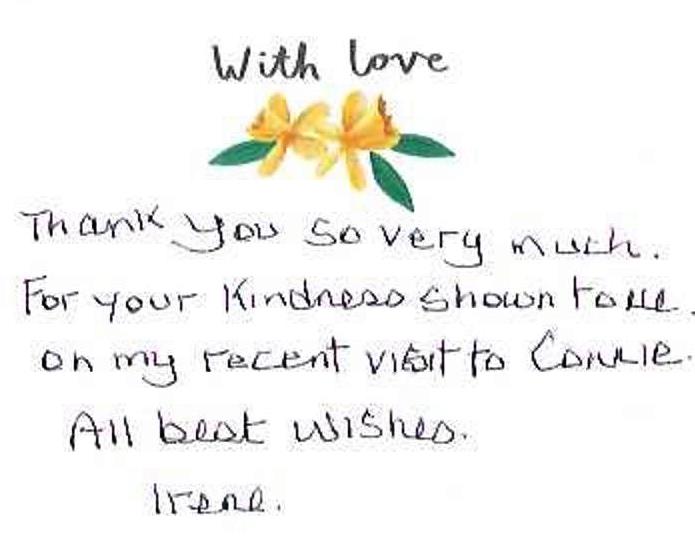 With love
Thank you so very much.
For your Kindness shown to me.
on my recent visit to Connie.
All best wishes.
Irene.